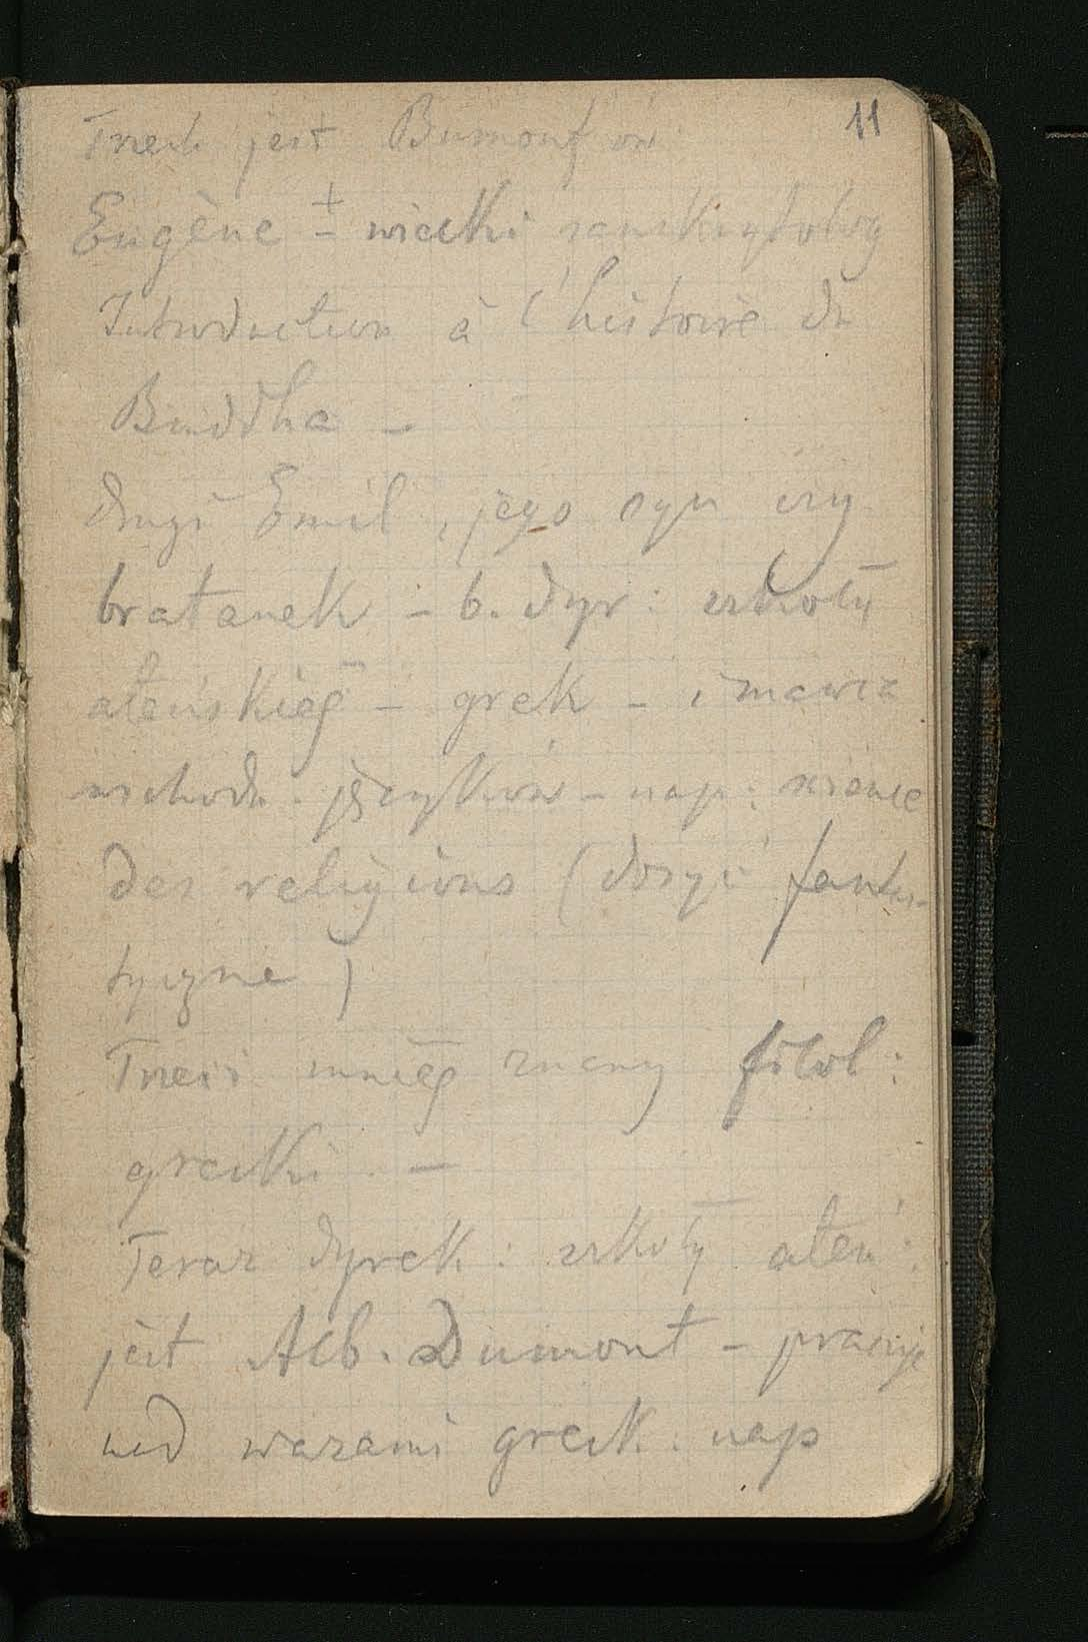 11
Trzech jest Burnouf'ów
Eugène ± wielki sanskrytolog
Introduction à l'histoire du
Buddha –
drugi Emil, jego syn czy
bratanek – b. dyr: szkoły
ateńskiéj – grek – i
wschodn. języków – nap: science
des religions (dosyć fantas-
tyczne)
Trzeci mniéj znany filol:
grecki –
Teraz dyrek: szkoły ateń:
jest Alb. Dumont – pracuje
nad wazami greck. nap